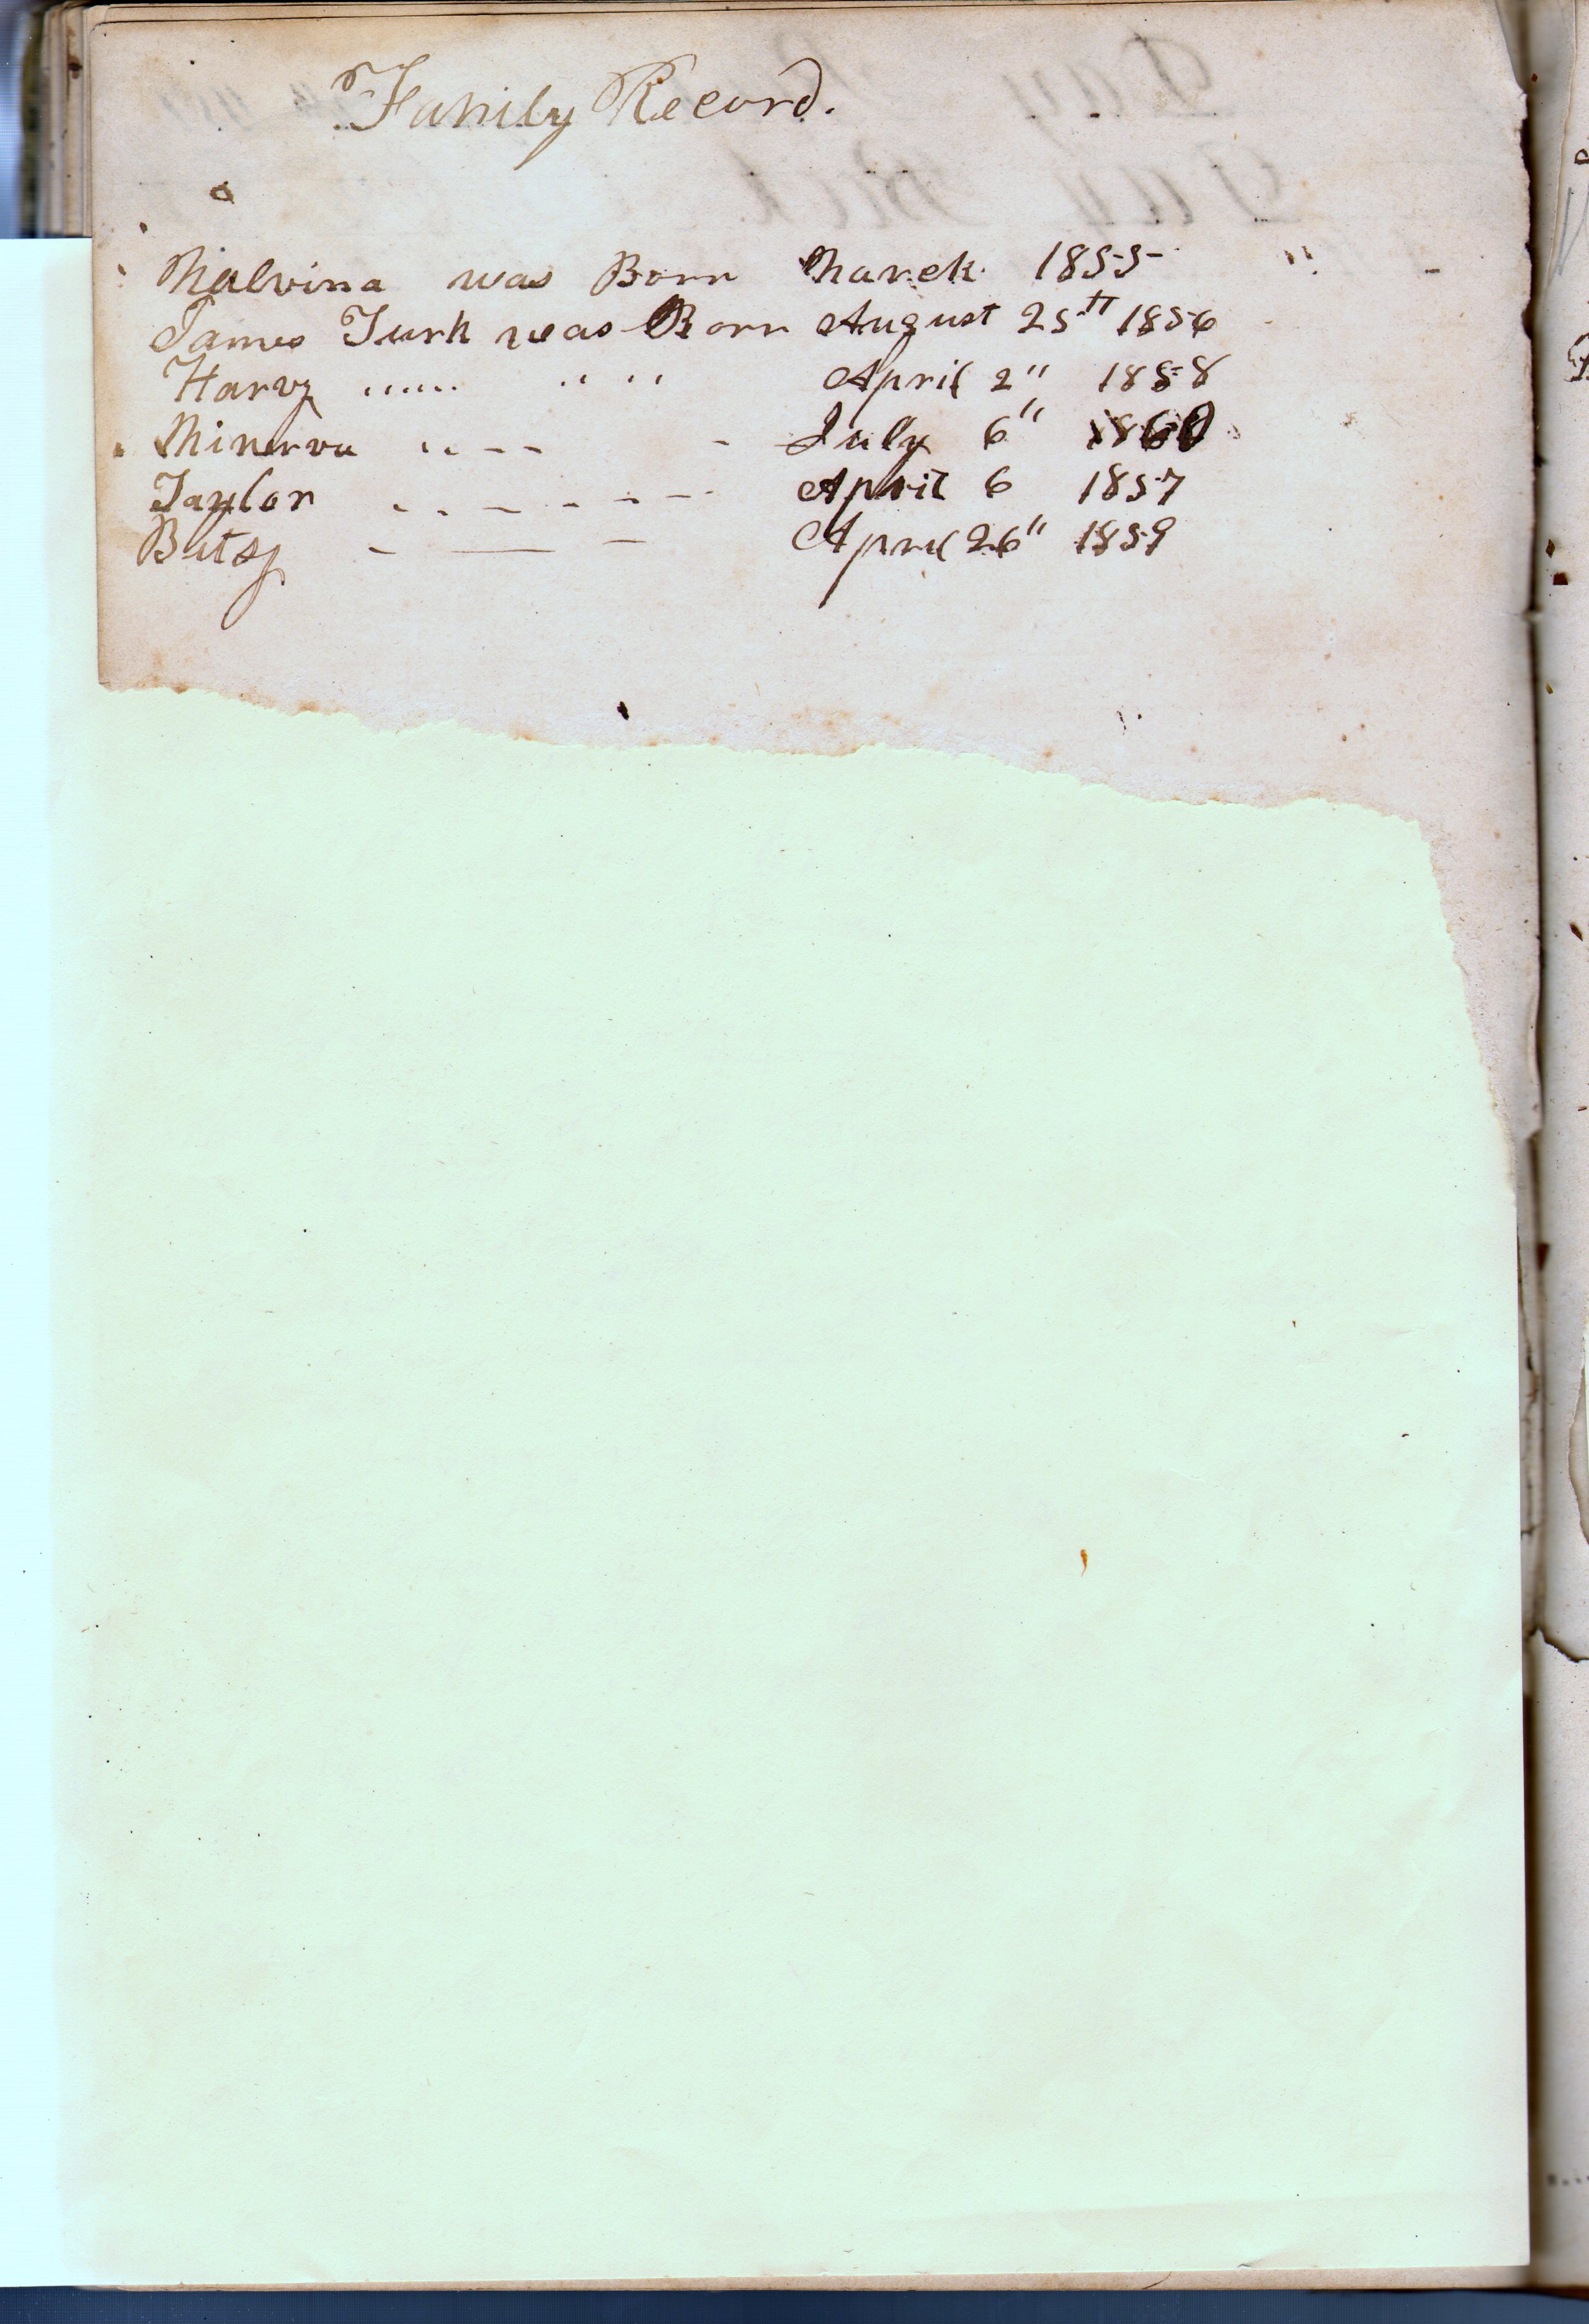 Family Record.
Malvina was Born March 1855
James Turk was Born August 25th 1856
Harvy " " April 2" 1858
Minerva " - - - July 6" 1860
Taylor - - - - - - April 6 1857
Batsy - — - April 26" 1859